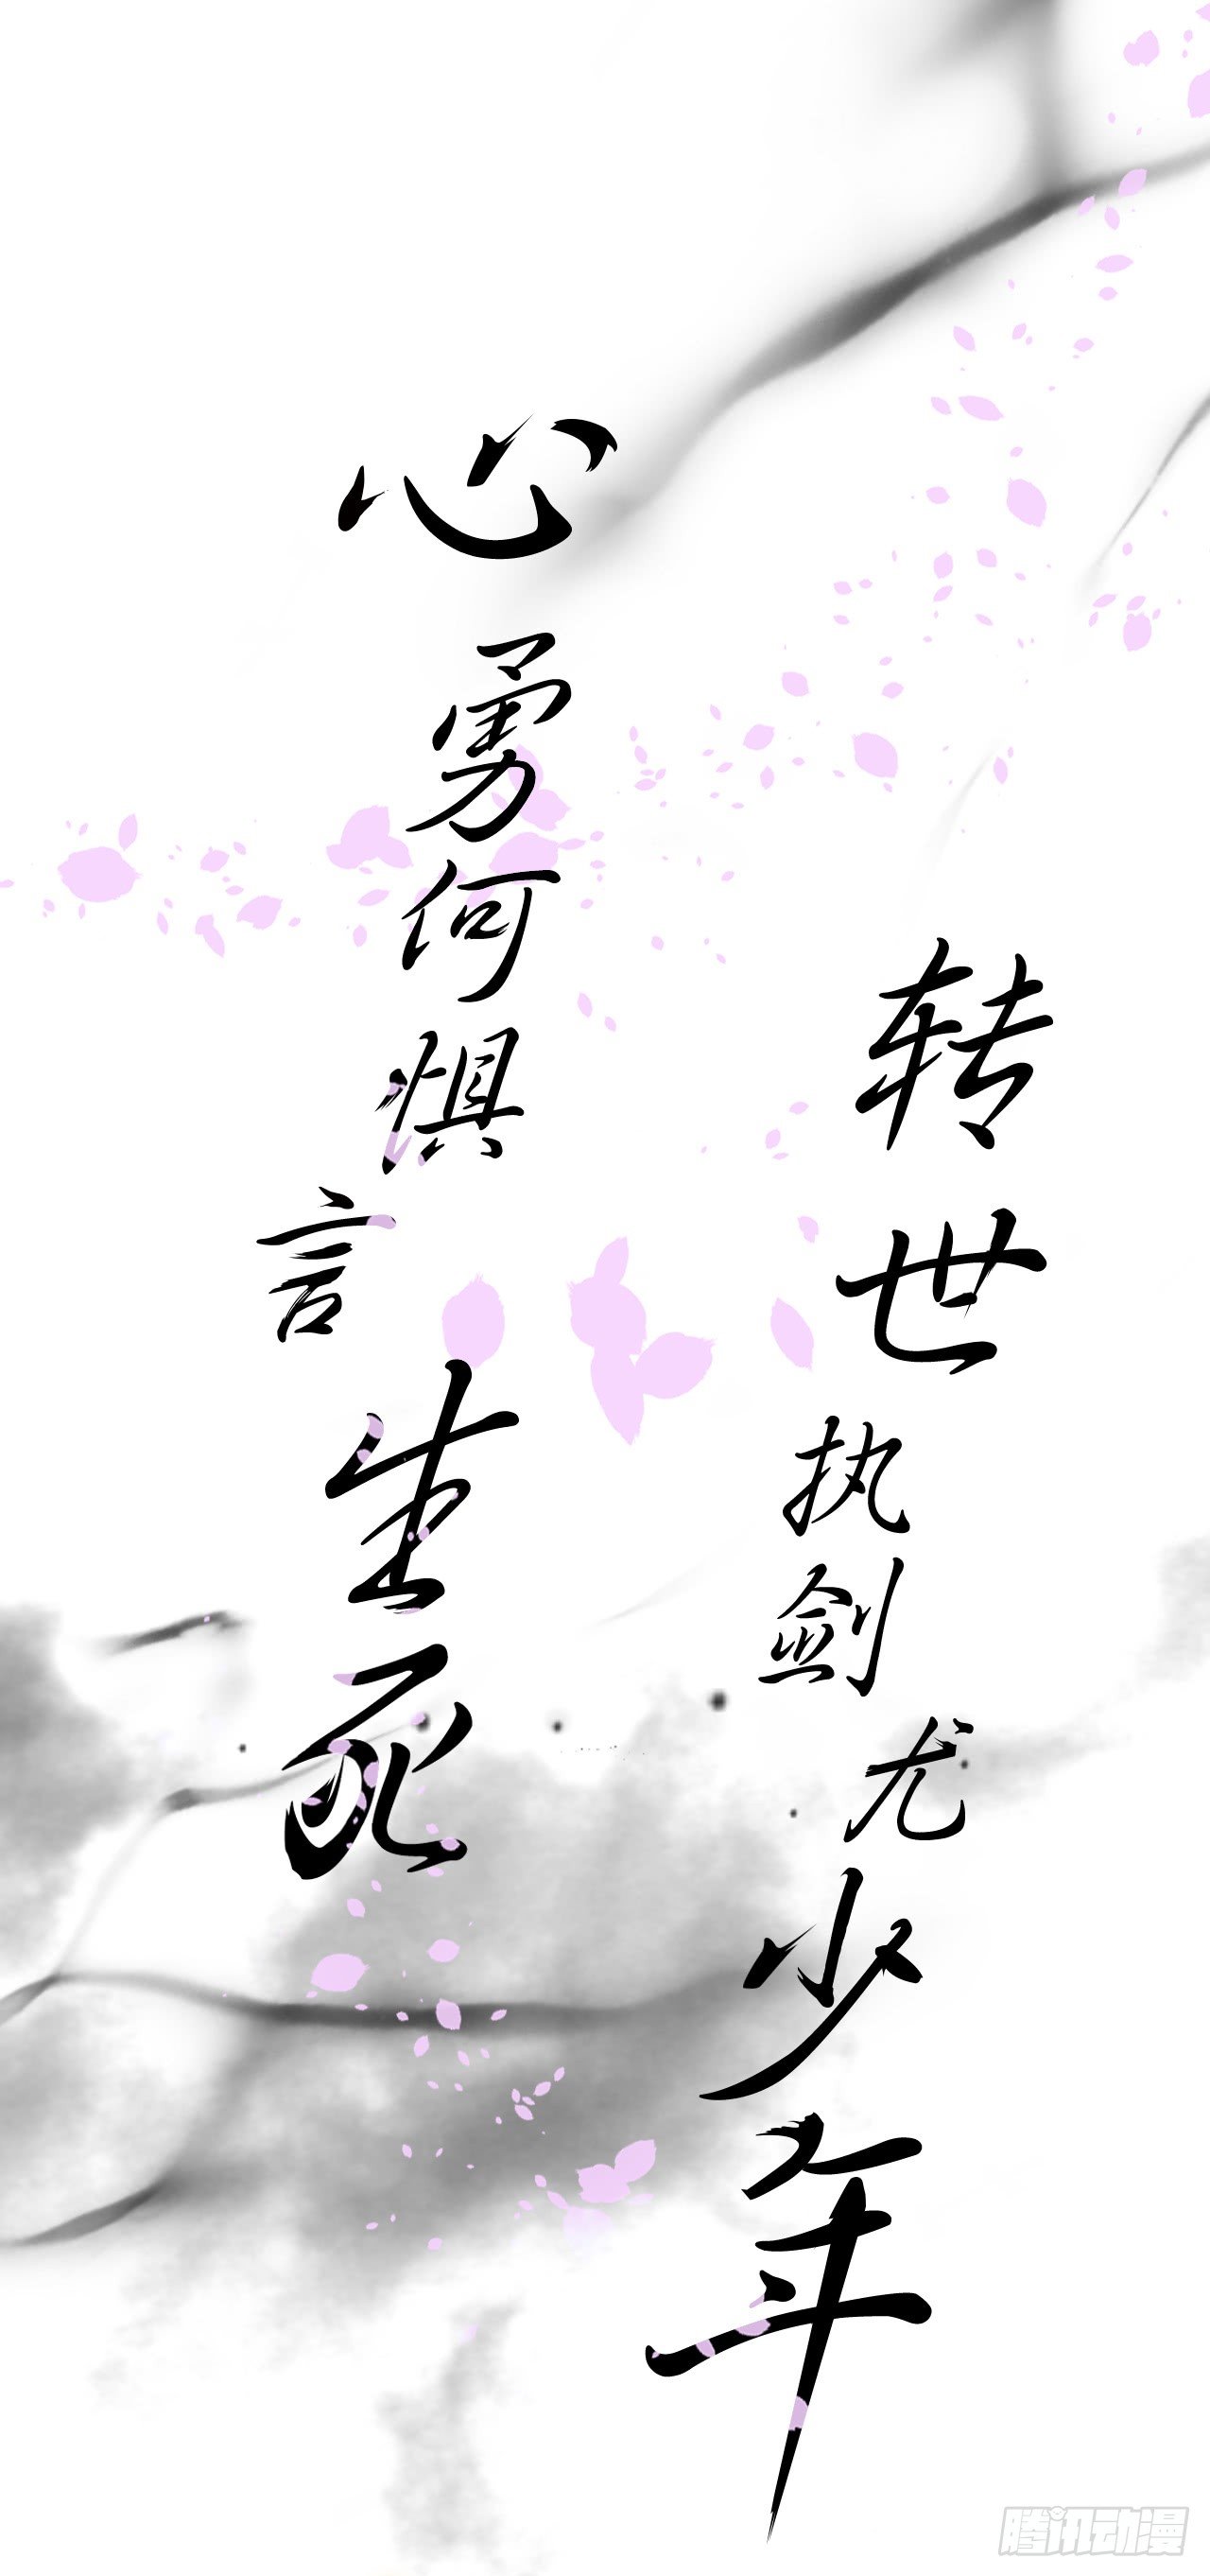 转世执剑尤少年
心勇何惧言生死
腾讯动漫